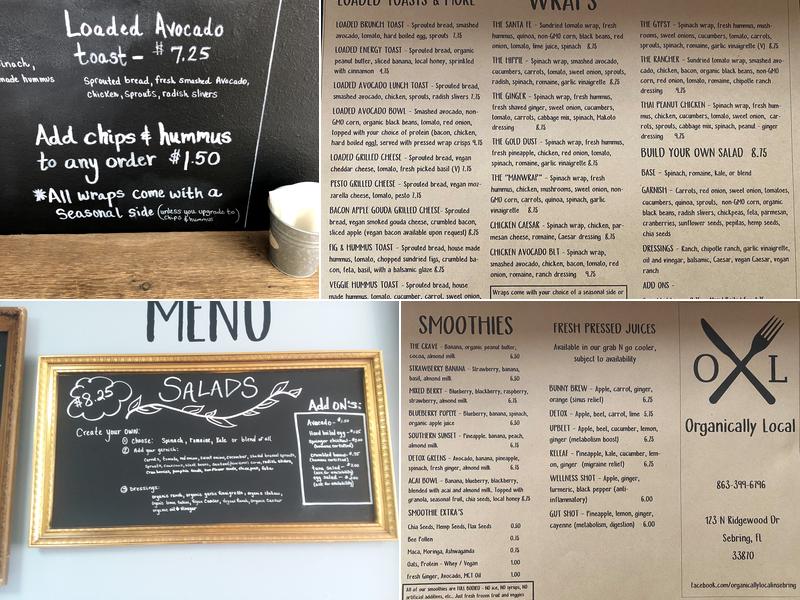 Loaded Avocado
toast - $7.25
inach,
made hummus
Sprouted bread, fresh smashed Avocado,
chicken, sprouts, radish slivers
Add chips & hummus
to any order $1.50
*All wraps come with a
Seasonal side (unless you upgrade to)
chips & hummus
LOADED TOASTS & MORE
LOADED BRUNCH TOAST - Sprouted bread, smashed
avocado, tomato, hard boiled egg, sprouts 7.75
LOADED ENERGY TOAST - Sprouted bread, organic
peanut butter, sliced banana, local honey, sprinkled
with cinnamon 4.75
LOADED AVOCADO LUNCH TOAST - Sprouted bread,
smashed avocado, chicken, sprouts, radish slivers 7.75
LOADED AVOCADO BOWL - Smashed avocado, non-
GMO corn, organic black beans, tomato, red onion,
topped with your choice of protein (bacon, chicken,
hard boiled egg), served with pressed wrap crisps 9.75
LOADED GRILLED CHEESE - Sprouted bread, vegan
cheddar cheese, tomato, fresh picked basil (V) 7.75
PESTO GRILLED CHEESE - Sprouted bread, vegan moz-
zarella cheese, tomato, pesto 7.75
BACON APPLE GOUDA GRILLED CHEESE- Sprouted
bread, vegan smoked gouda cheese, crumbled bacon,
sliced apple (vegan bacon available upon request) 8.75
FIG & HUMMUS TOAST - Sprouted bread, house made
hummus, tomato, chopped sundried figs, crumbled ba-
con, feta, basil, with a balsamic glaze 8.75
VEGGIE HUMMUS TOAST - Sprouted bread, house
made hummus, tomato, cucumber, carrot, sweet onion,
WRAPS
THE SANTA FE - Sundried tomato wrap, fresh
hummus, quinoa, non-GMO corn, black beans, red
onion, tomato, lime juice, spinach 8.75
THE HIPPIE - Spinach wrap, smashed avocado,
cucumbers, carrots, tomato, sweet onion, sprouts,
radish, spinach, romaine, garlic vinaigrette 8.75
THE GINGER - Spinach wrap, fresh hummus,
fresh shaved ginger, sweet onion, cucumbers,
tomato, carrots, cabbage mix, spinach, Makoto
dressing 8.75
THE GOLD DUST - Spinach wrap, fresh hummus,
fresh pineapple, chicken, red onion, tomato,
spinach, romaine, garlic vinaigrette 8.75
THE "MANWRAP" - Spinach wrap, fresh
hummus, chicken, mushrooms, sweet onion, non-
GMO corn, quinoa, bacon, spinach, garlic
vinaigrette 8.75
CHICKEN CAESAR - Spinach wrap, chicken, par-
mesan cheese, romaine, Caesar dressing 8.75
CHICKEN AVOCADO BLT - Spinach wrap,
smashed avocado, chicken, bacon, tomato, red
onion, romaine, ranch dressing 9.75
Wraps come with your choice of a seasonal side or
THE GYPSY - Spinach wrap, fresh hummus, mush-
rooms, sweet onions, cucumbers, tomato, carrots,
sprouts, spinach, romaine, garlic vinaigrette (V) 8.75
THE RANCHER - Sundried tomato wrap, smashed avo-
cado, chicken, bacon, organic black beans, non-GMO
corn, red onion, tomato, romaine, chipotle ranch
dressing 9.75
THAI PEANUT CHICKEN - Spinach wrap, fresh hum-
mus, chicken, cucumbers, tomato, sweet onion, car-
rots, sprouts, cabbage mix, spinach, peanut - ginger
dressing 9.75
BUILD YOUR OWN SALAD 8.75
BASE - Spinach, romaine, Kale, or blend
GARNISH - Carrots, red onion, sweet onion, tomatoes,
cucumbers, quinoa, sprouts, non-GMO corn, organic
black beans, radish slivers, chickpeas, feta, parmesan,
cranberries, sunflower seeds, pepitas, hemp seeds,
chia seeds
DRESSINGS - Ranch, chipotle ranch, garlic vinaigrette,
oil and vinegar, balsamic, Caesar, vegan Caesar, vegan
ranch
ADD ONS -
MENU
$8.25
SALADS
Add ON's:
Create your Own:
① choose: Spinach, Romaine, Kale or blend of all
② Add your garnish:
③ Dressings:
Avocado-
Hard boiled egg-
SMOOTHIES
THE CRAVE - Banana, organic peanut butter,
cocoa, almond milk 6.50
STRAWBERRY BANANA - Strawberry, banana,
basil, almond milk 6.50
MIXED BERRY - Blueberry, blackberry, raspberry,
strawberry, almond milk 6.75
BLUEBERRY POPEYE - Blueberry, banana, spinach,
organic apple juice 6.50
SOUTHERN SUNSET - Pineapple, banana, peach,
almond milk 6.75
DETOX GREENS - Avocado, banana, pineapple,
spinach, fresh ginger, almond milk 6.75
ACAI BOWL - Banana, blueberry, blackberry,
blended with acai and almond milk, Topped with
granola, seasonal fruit, chia seeds, local honey 8.75
SMOOTHIE EXTRA'S
Chia Seeds, Hemp Seeds, Flax Seeds 0.50
Bee Pollen 0.75
Maca, Moringa, Ashwaganda 0.75
Oats, Protein - Whey / Vegan 1.00
Fresh Ginger, Avocado, MCT Oil 1.00
All of our smoothies are FULL BODIED - NO ice, NO syrups, NO
artificial additives, etc., Just fresh frozen fruit and veggies
FRESH PRESSED JUICES
Available in our grab N go cooler,
subject to availability
BUNNY BREW - Apple, carrot, ginger,
orange (sinus relief) 6.75
DETOX - Apple, beet, carrot, lime 5.75
UPBEET - Apple, beet, cucumber, lemon,
ginger (metabolism boost) 6.75
KELLEAF - Pineapple, kale, cucumber, lem-
on, ginger (migraine relief) 6.75
WELLNESS SHOT - Apple, ginger,
turmeric, black pepper (anti-
inflammatory) 6.00
GUT SHOT - Pineapple, lemon, ginger,
cayenne (metabolism, digestion) 6.00
O L
Organically Local
863-399-6196
123 N Ridgewood Dr
Sebring, FL
33870
facebook.com/organicallylocalinsebring